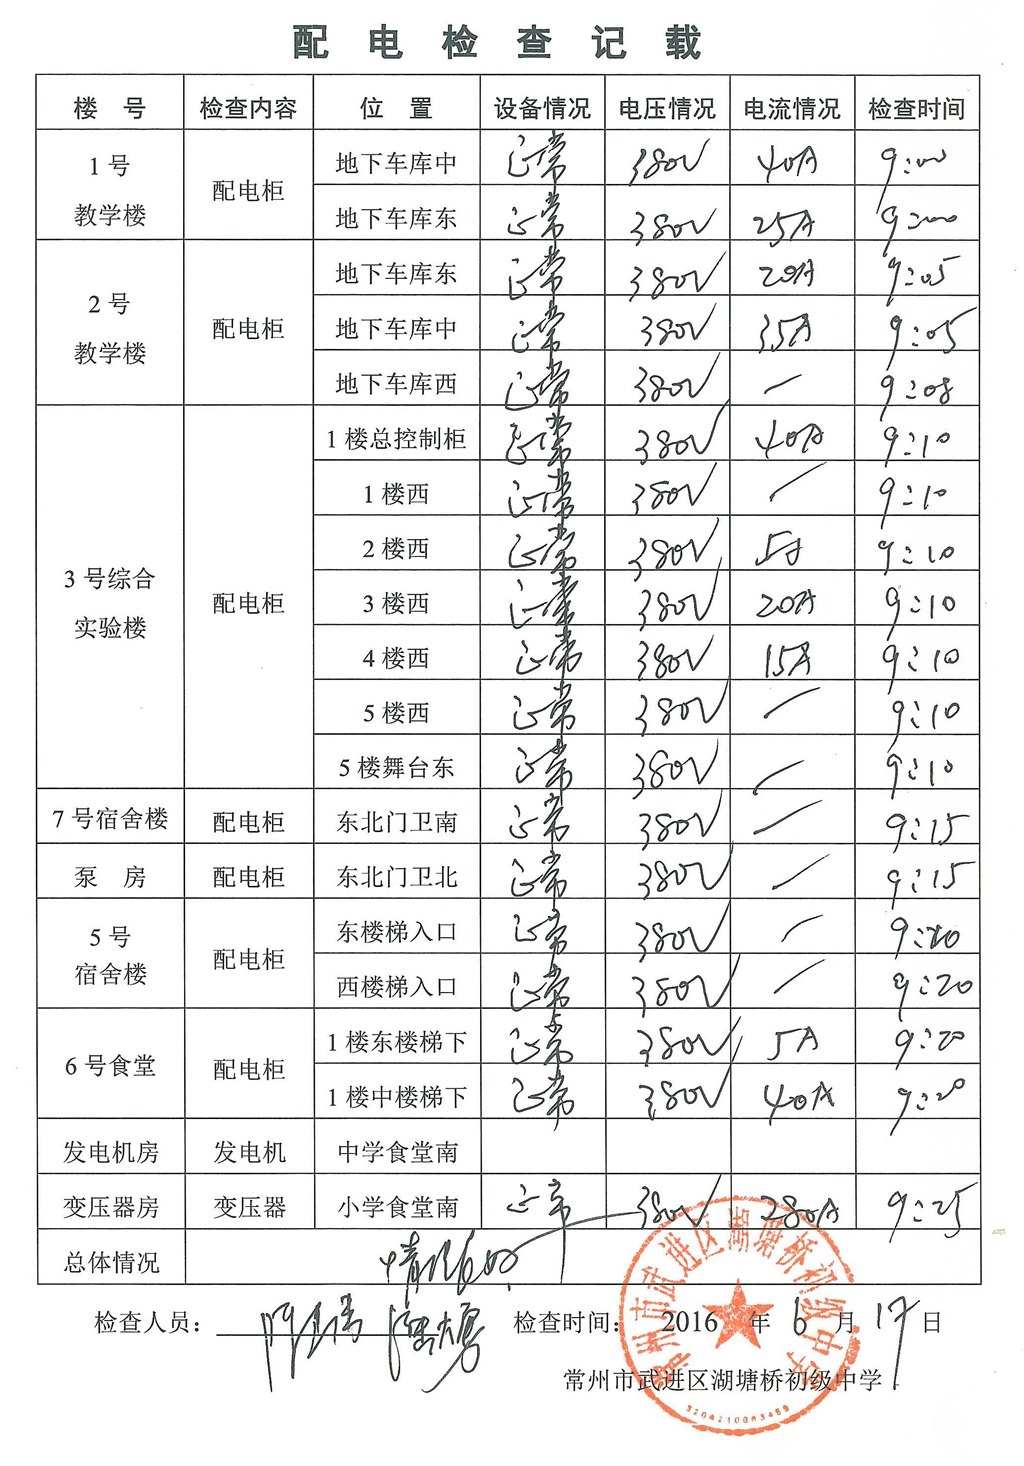 配电检查记载
楼 号 检查内容 位 置 设备情况 电压情况 电流情况 检查时间
1号教学楼 配电柜 地下车库中 正常 380V 40A 9:00
地下车库东 正常 380V 25A 9:00
2号教学楼 配电柜 地下车库东 正常 380V 20A 9:05
地下车库中 正常 380V 35A 9:05
地下车库西 正常 380V — 9:08
3号综合实验楼 配电柜 1楼总控制柜 正常 380V 40A 9:10
1楼西 正常 380V — 9:10
2楼西 正常 380V 5A 9:10
3楼西 正常 380V 20A 9:10
4楼西 正常 380V 15A 9:10
5楼西 正常 380V — 9:10
5楼舞台东 正常 380V — 9:10
7号宿舍楼 配电柜 东北门卫南 正常 380V — 9:15
泵 房 配电柜 东北门卫北 正常 380V — 9:15
5号宿舍楼 配电柜 东楼梯入口 正常 380V — 9:20
西楼梯入口 正常 380V — 9:20
6号食堂 配电柜 1楼东楼梯下 正常 380V 5A 9:20
1楼中楼梯下 正常 380V 40A 9:20
发电机房 发电机 中学食堂南
变压器房 变压器 小学食堂南 正常 380V 280A 9:25
总体情况 情况良好
检查人员： 检查时间： 2016 年 6 月 17 日
常州市武进区湖塘桥初级中学
常州市武进区湖塘桥初级中学